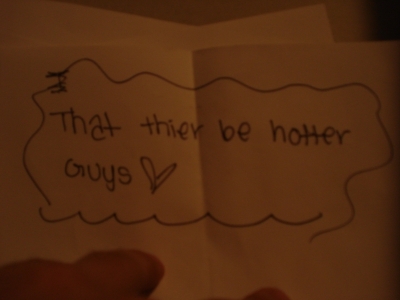 That thier be hotter
Guys